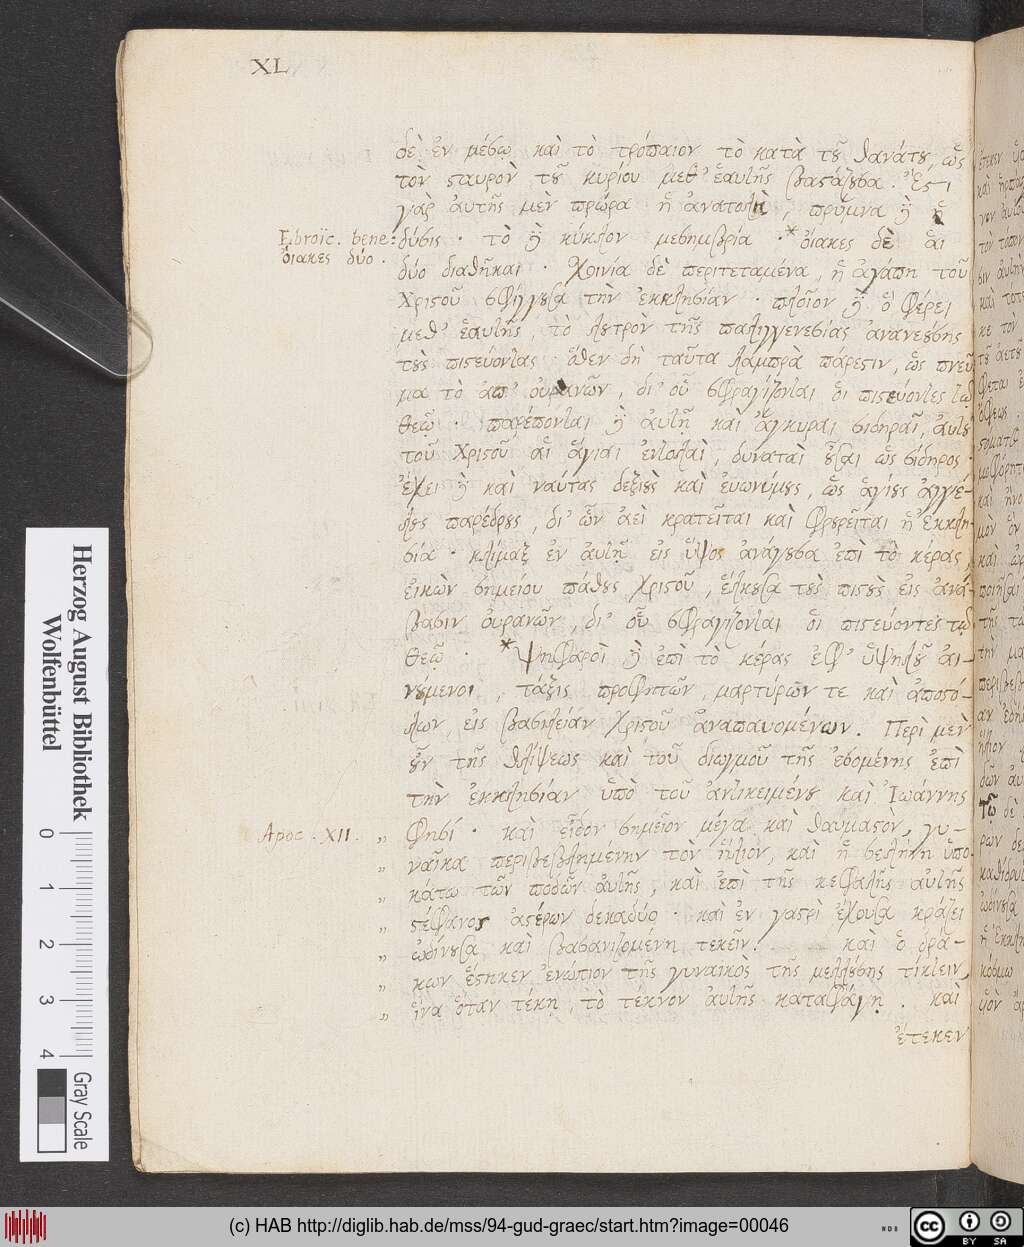 XL
δὲ ἐν μέσῳ καὶ τὸ τρόπαιον τὸ κατὰ τοῦ θανάτου, ὡς
τὸν σταυρὸν τοῦ κυρίου μεθ' ἑαυτῆς βαστάζουσα. Ἐστὶ
γὰρ ἀυτῆς μὲν πρώρα ἡ ἀνατολὴ, πρύμνα δὲ ἡ
Ebroïc. bene: δύσις · τὸ δὲ κύκλον μεσημβρία · * ὄιακες δὲ ἁι
ὄιακες δύο.
δύο διαθῆκαι · χοινία δὲ περιτεταμένα, ἡ ἀγάπη τοῦ
Χριστοῦ σφίγγουσα τὴν ἐκκλησίαν · πλοῖον δὲ, ὃ φέρει
μεθ' ἑαυτῆς, τὸ λουτρὸν τῆς παλιγγενεσίας ἀνανεούσης
τοὺς πιστεύοντας ὅθεν δὴ ταῦτα λαμπρὰ πάρεστιν, ὡς πνεῦ
μα τὸ ἀπ' οὐρανῶν, δι' οὗ σφραγίζονται ὁι πιστεύοντες τῷ
Θεῷ · παρέπονται δὲ ἀυτῇ καὶ ἄγκυραι σιδηραῖ, ἀυτοῦ
τοῦ Χριστοῦ αἱ ἅγιαι ἐντολαὶ, δυναταὶ οὖσαι ὡς σίδηρος ·
ἔχει δὲ καὶ ναύτας δεξιοὺς καὶ εὐωνύμους, ὡς ἁγίους ἀγγέ-
λους παρέδρους, δι' ὧν ἀεὶ κρατεῖται καὶ φρουρεῖται ἡ Ἐκκλη-
σία · κλίμαξ ἐν ἀυτῇ εἰς ὕψος ἀνάγουσα ἐπὶ τὸ κέρας,
ἐικὼν σημείου πάθους Χριστοῦ, ἕλκουσα τοὺς πιστοὺς εἰς ἀνά-
βασιν ὀυρανῶν, δι' οὗ σφραγίζονται ὁι πιστεύοντες τῷ
Θεῷ · * Ψηφαροὶ δὲ ἐπὶ τὸ κέρας ἐφ' ὑψηλοῦ ἀι-
νούμενοι, τάξις προφητῶν, μαρτύρων τε καὶ ἀποστό-
λων, εἰς βασιλείαν Χριστοῦ ἀναπαυομένων. Περὶ μὲν
οὖν τῆς θλίψεως καὶ τοῦ διωγμοῦ τῆς ἐσομένης ἐπὶ
τὴν ἐκκλησίαν ὑπὸ τοῦ ἀντικειμένου καὶ Ἰωάννης
Apoc. XII. „ φησί · καὶ εἶδον σημεῖον μέγα καὶ θαυμαστὸν, γυ-
„ ναῖκα περιβεβλημένην τὸν ἥλιον, καὶ ἡ σελήνη ὑπο-
„ κάτω τῶν ποδῶν ἀυτῆς, καὶ ἐπὶ τῆς κεφαλῆς ἀυτῆς
„ στέφανος ἀστέρων δεκαδύο · καὶ ἐν γαστρὶ ἔχουσα κράζει
„ ὠδίνουσα καὶ βασανιζομένη τεκεῖν. καὶ ὁ δρά-
„ κων ἕστηκεν ἐνώπιον τῆς γυναικὸς τῆς μελλούσης τίκτειν,
„ ἵνα ὅταν τέκῃ, τὸ τέκνον ἀυτῆς καταφάγῃ. καὶ
ἔτεκεν
Herzog August Bibliothek
Wolfenbüttel
0 1 2 3 4 Gray Scale
(c) HAB http://diglib.hab.de/mss/94-gud-graec/start.htm?image=00046
WDB
cc BY SA